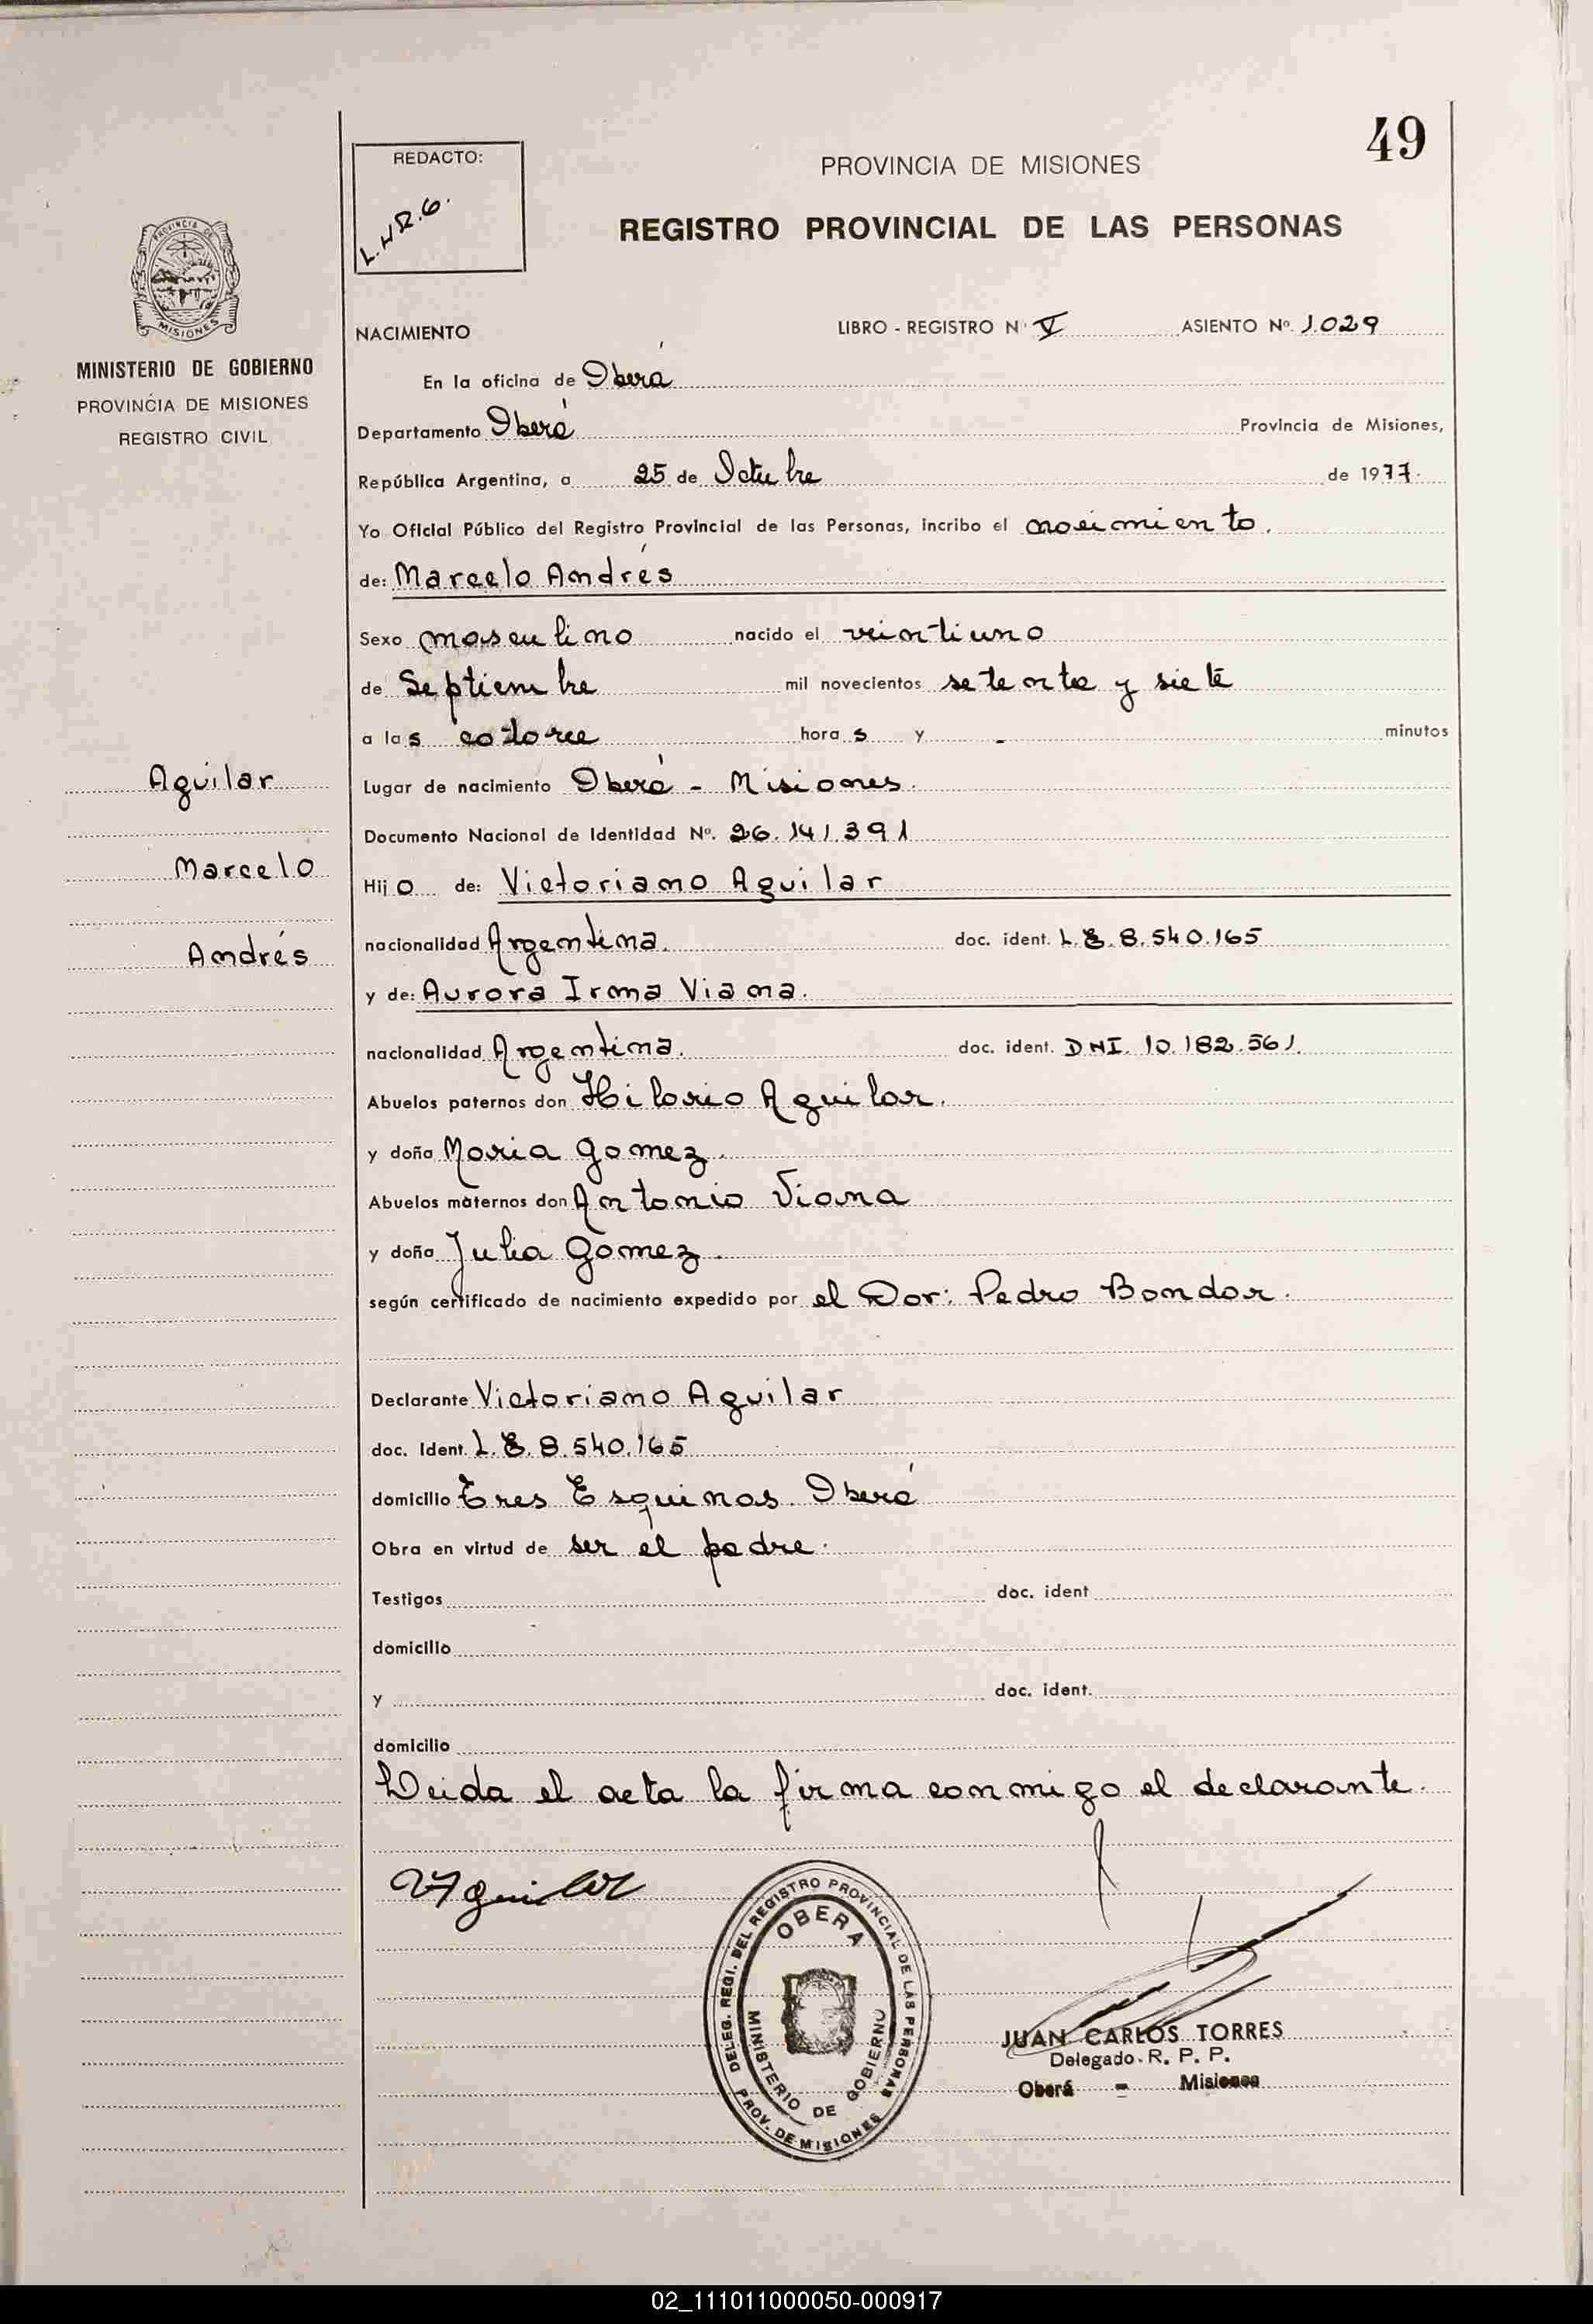 49
REDACTO:
L.H.R.G.
PROVINCIA DE MISIONES
REGISTRO PROVINCIAL DE LAS PERSONAS
PROVINCIA DE
MISIONES
MINISTERIO DE GOBIERNO
PROVINCIA DE MISIONES
REGISTRO CIVIL
NACIMIENTO LIBRO - REGISTRO Nº V ASIENTO Nº. 1.029
En la oficina de Oberá
Departamento Oberá Provincia de Misiones,
República Argentina, a 25 de Octubre de 1977.
Yo Oficial Público del Registro Provincial de las Personas, incribo el nacimiento.
de: Marcelo Andrés
Sexo masculino nacido el veintiuno
de Septiembre mil novecientos setenta y siete
a las catorce horas y - minutos
Aguilar
Lugar de nacimiento Oberá - Misiones.
Documento Nacional de Identidad Nº. 26.141.391
Marcelo
Hijo de: Victoriano Aguilar
Andrés
nacionalidad Argentina. doc. ident. L.E. 8.540.165
y de: Aurora Irma Viana.
nacionalidad Argentina. doc. ident. DNI. 10.182.561.
Abuelos paternos don Hilario Aguilar.
y doña Maria Gomez.
Abuelos maternos don Antonio Viana
y doña Julia Gomez.
según certificado de nacimiento expedido por el Dor: Pedro Bondar.
Declarante Victoriano Aguilar
doc. Ident. L.E. 8.540.165
domicilio Tres Esquinas. Oberá
Obra en virtud de ser el padre.
Testigos doc. ident
domicilio
y doc. ident.
domicilio
Leida el acta la firma conmigo el declarante.
VAguilar
DELEG. REGI. DEL REGISTRO PROVINCIAL DE LAS PERSONAS
OBERA
MINISTERIO DE GOBIERNO
PROV. DE MISIONES
JUAN CARLOS TORRES
Delegado. R. P. P.
Oberá - Misiones
02_111011000050-000917